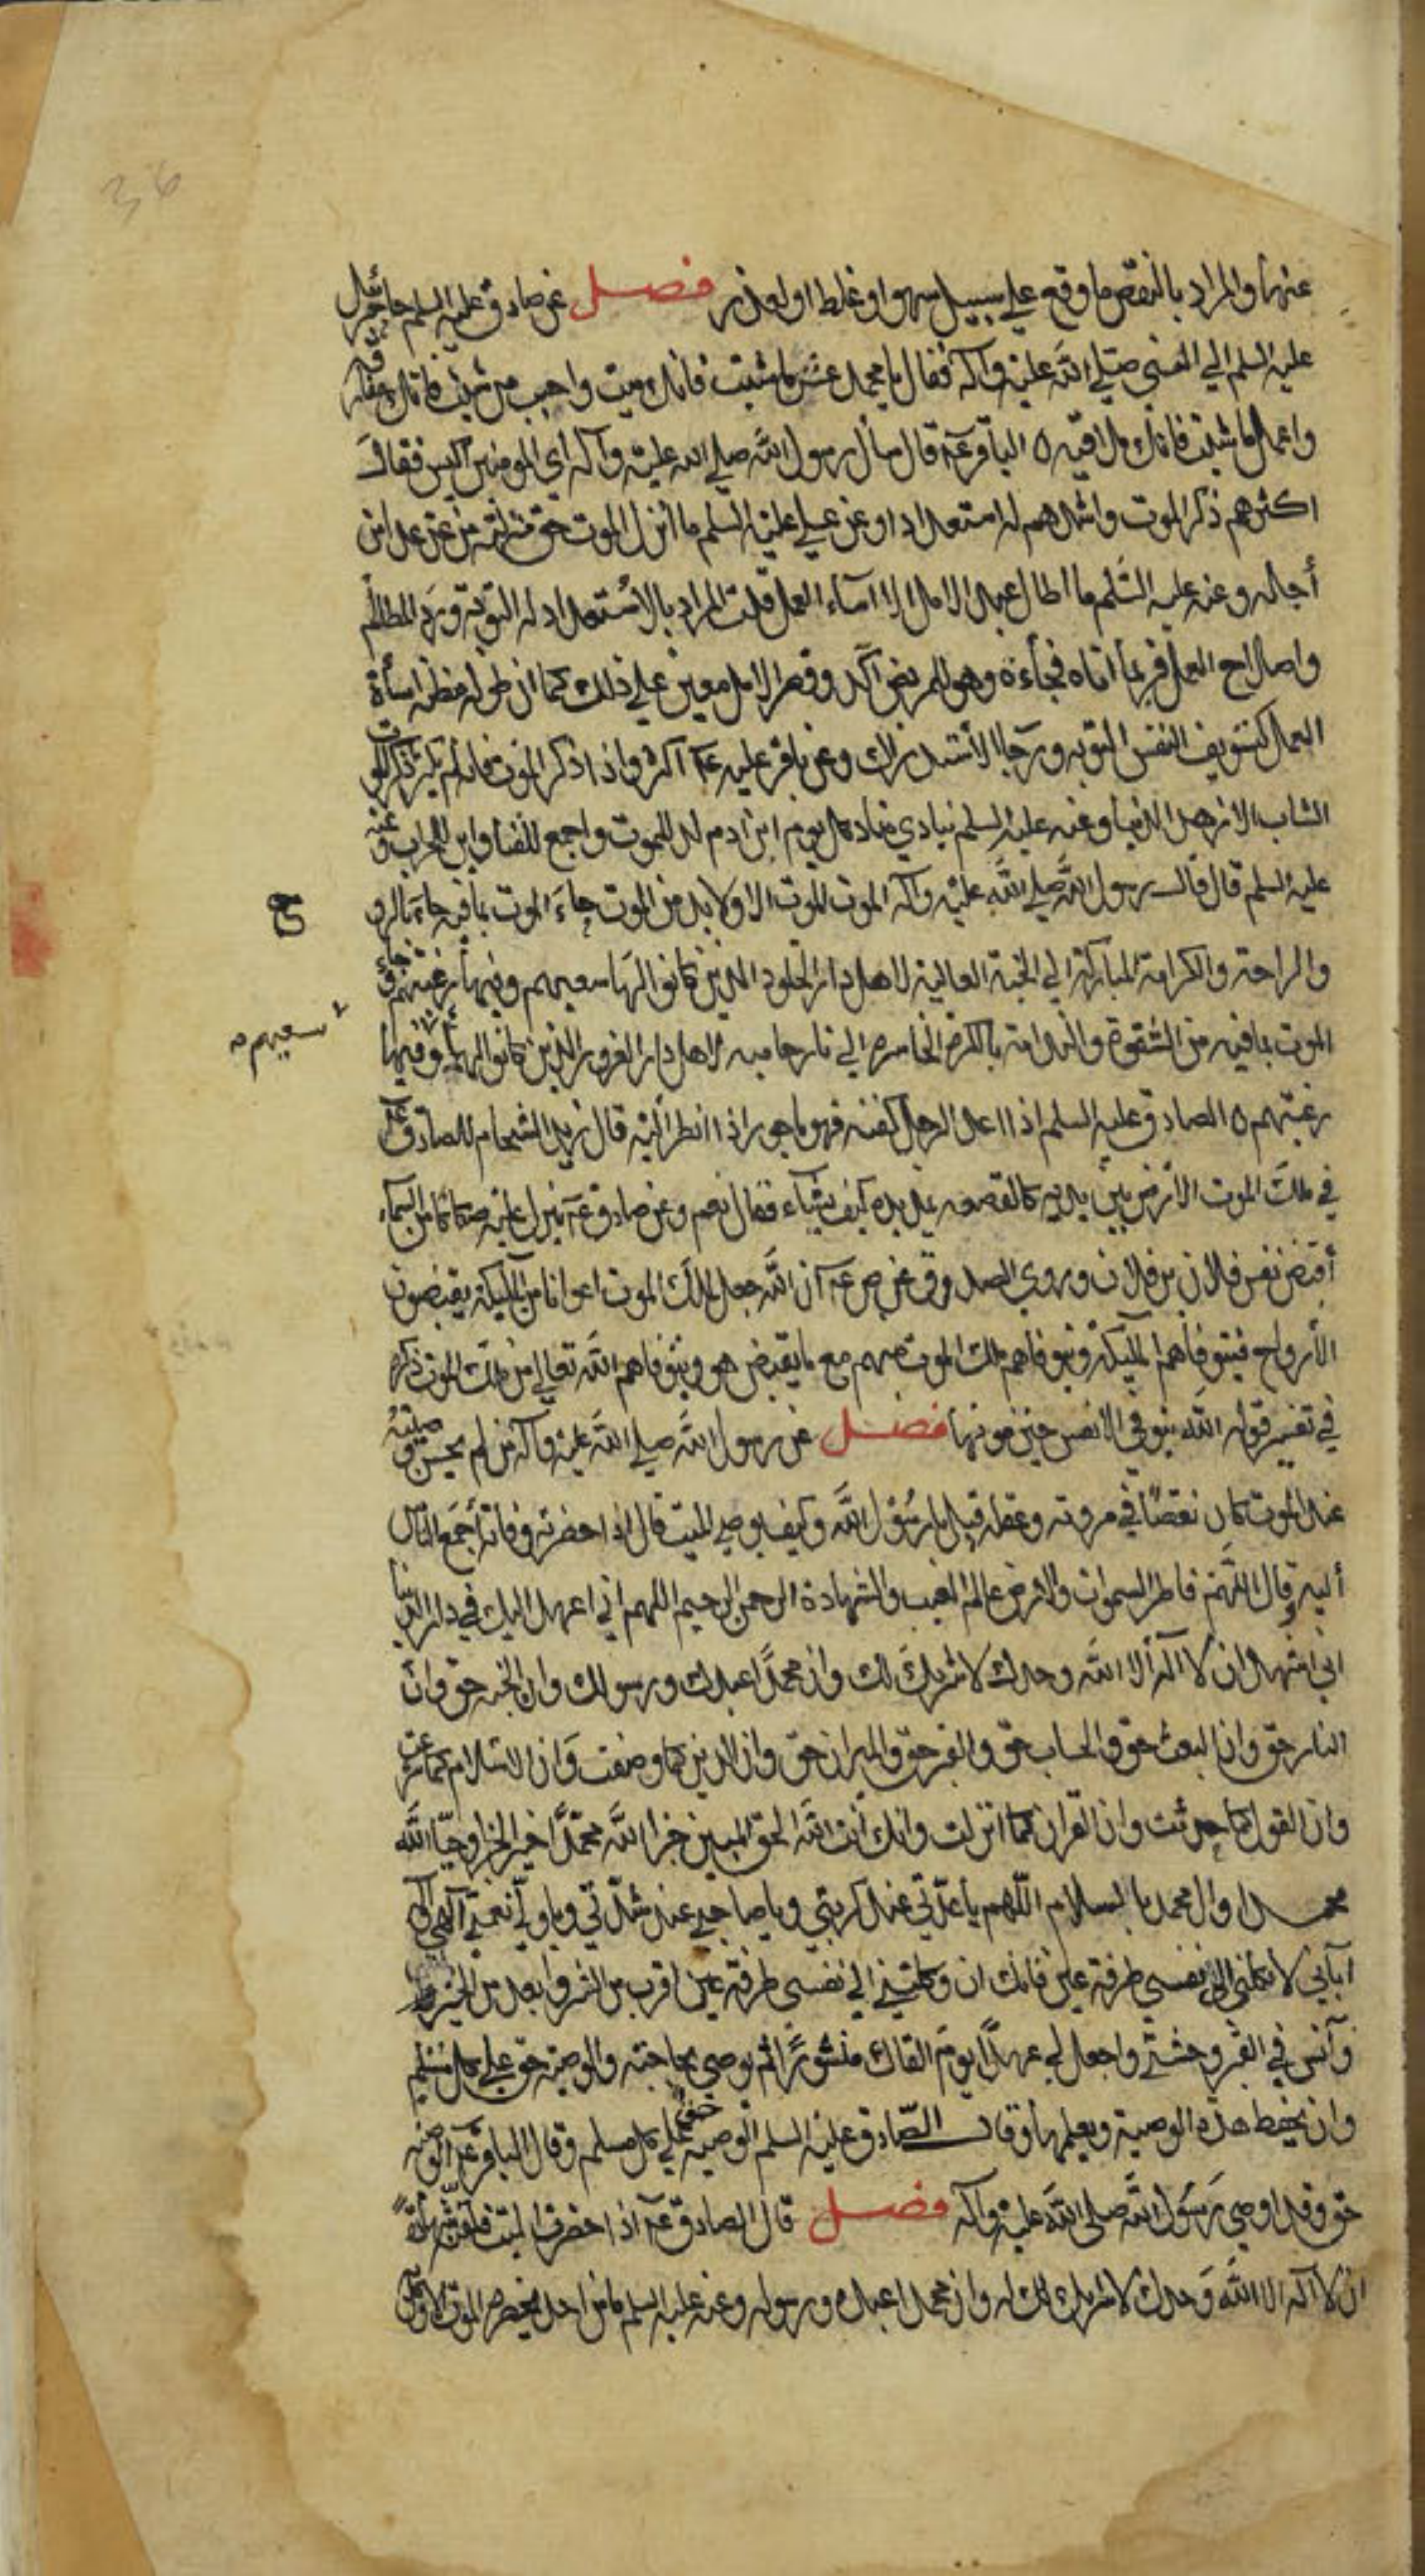 36
عنها والمراد بالنقص ما وقع علي سبيل سهو او غلط او لعذر فصل عن صادق عليه السلم جاء جبرئيل
عليه السلم الي النبي صلي الله عليه وآله فقال يا محمد عش ما شئت فانك ميت واحبب من شئت فانك مفارقه
واعمل ما شئت فانك ملاقيه ٥ الباقر عۤ قال سأل رسول الله صلي الله عليه وآله اي المومنين اكيس فقال
اكثرهم ذكر الموت واشدهم له استعدادا وعن علي عليه السلم ما انزل الموت حق منزلته من عد غدا من
أجله وعنه عليه السَّلم ما اطال عبد الامل الا اسآء العمل قلت المراد بالاستعداد له التوبة ورد المظالم
واصلاح العمل فربما أتاه فجأءة وهو للمريض آكد وقصر الامل معين علي ذلك كما ان طوله مظنه اسأة
العمل كتسويف النفس التوبه ورجاا لاستدراك وعن باقر عليه عۤ اكثروا ذكر الموت فانه لم يكثر ذكر الموت
الشاب الا زهد الدنيا وعنه عليه السلم ينادي مناد كل يوم ابن ادم لد للموت واجمع للفنا وابن للخراب وعنه
عليه السلم قال قال رسول الله صلي الله عليه وآله الموت الموت الا ولا بد من الموت جاءَ الموت بما فيه جاءَ بالروح
ح
والراحة والكرامة المباركة الي الجنة العالية لاهل دار الخلود الذين كانوا لها سعيهم وفيها رغبتهم وجاء
الموت بما فيه من الشقوة والندامة بالكرة الخاسره الي نار حاميه لاهل دار الغرور الذين كانوا لها وفيها
سعيهم صه
رغبتهم ٥ الصادق عليه السلم اذا اعد الرجل كفنه فهو ماجور اذا انظر اليه قال زيد الشحام للصادق عۤ
في ملك الموت الارض بين يديه كالقصعه يمد يده كيف يشآء فقال نعم وعن صادق عۤ ينزل عليه صكاكا من السماء
أقبض نفس فلان بن فلان وروي الصدوق عن ص عۤ ان الله جعل لملك الموت اعوانا من المليكة يقبضون
الأرواح فيتوفاهم المليكة وتتوفاهم ملك الموت منهم مع ما يقبض هو ويتوفاهم الله تعالي من ملك الموت ذكره
في تفسير قوله الله يتوفي الانفس حين موتها فصل عن رسول الله صلي الله عليه وآله من لم يحسن وصيته
عند الموت كان نقصًا في مروته وعقله قيل يا رسُوْل الله وكيف يوصي الميت قال اذا حضرته وفاته أجمَع الناس
أليه وقال اللَّهم فاطر السموات والارض عالم الغيب والشهادة الرحمن الرحيم اللهم اني اعهد اليك في دار الدنيا
اني اشهد ان لا آله ألا الله وحدك لا شريكَ لك وان محمدًا عبدك ورسولك وان الجنه حق وان
النار حق وان البعث حق والحساب حق والقبر حق والميزان حق وان الدين كما وصفت وان الاسلام كما شرعت
وان القول كما حدثت وان القرآن كما انزلت وانك انت الله الحق المبين جزا الله محمدًا خير الجزا وحيّا الله
محمدا وال محمد بالسلام اللّهم يا عدّتي عند كربتي ويا صاحبي عند شدّتي ويا ولي نعمتي آلهي واله
آبآئي لا تكلني الي نفسي طرفة عين فانك ان وكلتني الي نفسي طرفة عين اقرب من الشر وابعد من الخير
وآنس في القبر وحشتي واجعل لي عهدًا يومَ القاك منشورًا ثم يوصي بحاجته والوصيه حق علي كل مسلم
وان يحفظ هذه الوصية ويعلمها وقال الصّادق عليه السلم الوصيه حق علي كل مسلم وقال الباقر عۤ الوصيه
حق وقد اوصي رَسوَل الله صلي الله عليه وآله فصل قال الصادق عۤ اذا حضرت الميت فلقنه شهادة
ان لا آله الا الله وَحدك لا شريك لك له وان محمدا عبده ورسوله وعنه عليه السلم ما من احد يحضره الموت الا وكل